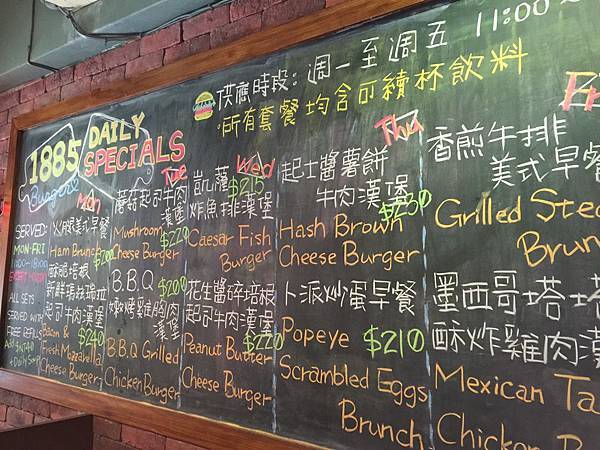 1885 DAILY
SPECIALS
Burger
供應時段: 週一至週五 11:00~
*所有套餐均含可續杯飲料
SERVED
MON-FRI
ALL SETS
SERVED WITH
FREE REFILLS
Mon
火腿美式早餐
Ham Brunch
酥脆培根
新鮮瑪茲瑞拉
起司牛肉漢堡
$240
Bacon &
Fresh Mozzarella
Cheese Burger
Tue
蘑菇起司牛肉
漢堡
Mushroom $220
Cheese Burger
B.B.Q $200
炭烤雞胸肉
漢堡
B.B.Q Grilled
Chicken Burger
Wed
凱薩 $215
炸魚排漢堡
Caesar Fish
Burger
花生醬碎培根
起司牛肉漢堡
Peanut Butter $220
Cheese Burger
Thu
起士醬薯餅
牛肉漢堡 $230
Hash Brown
Cheese Burger
卜派炒蛋早餐
Popeye $210
Scrambled Eggs
Brunch
香煎牛排
美式早餐
Grilled
Brun
墨西哥塔塔
酥炸雞肉漢
Mexican Ta
Chicken